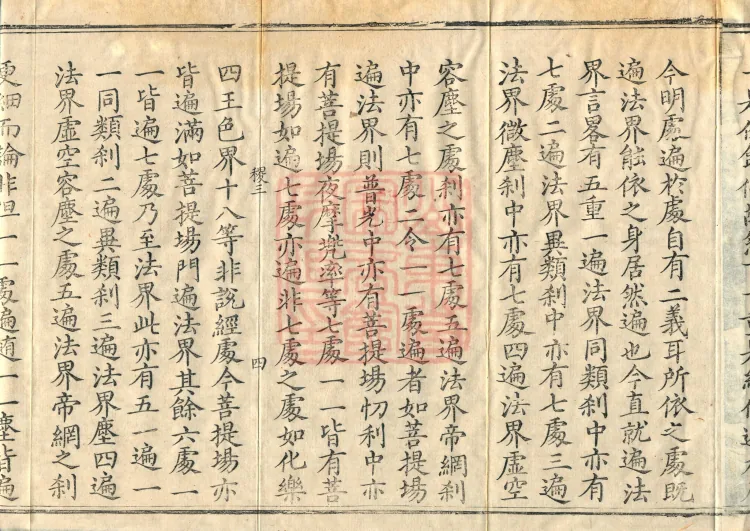 今明處遍於處自有二義耳所依之處既
遍法界能依之身居然遍也今直就遍法
界言畧有五重一遍法界同類刹中亦有
七處二遍法界異類刹中亦有七處三遍
法界微塵刹中亦有七處四遍法界虛空
容塵之處刹亦有七處五遍法界帝網刹
中亦有七處二令一一處遍者如菩提場
遍法界則普光中亦有菩提場忉利中亦
有菩提場夜摩兜率等七處一一皆有菩
提場如遍七處亦遍非七處之處如化樂
稷三
四
四王色界十八等非說經處今菩提場亦
皆遍滿如菩提場門遍法界其餘六處一
一皆遍七處乃至法界此亦有五一遍一
一同類刹二遍異類刹三遍法界塵四遍
法界虛空容塵之處五遍法界帝網之刹
更細而論非但一一處遍隨一一塵皆遍